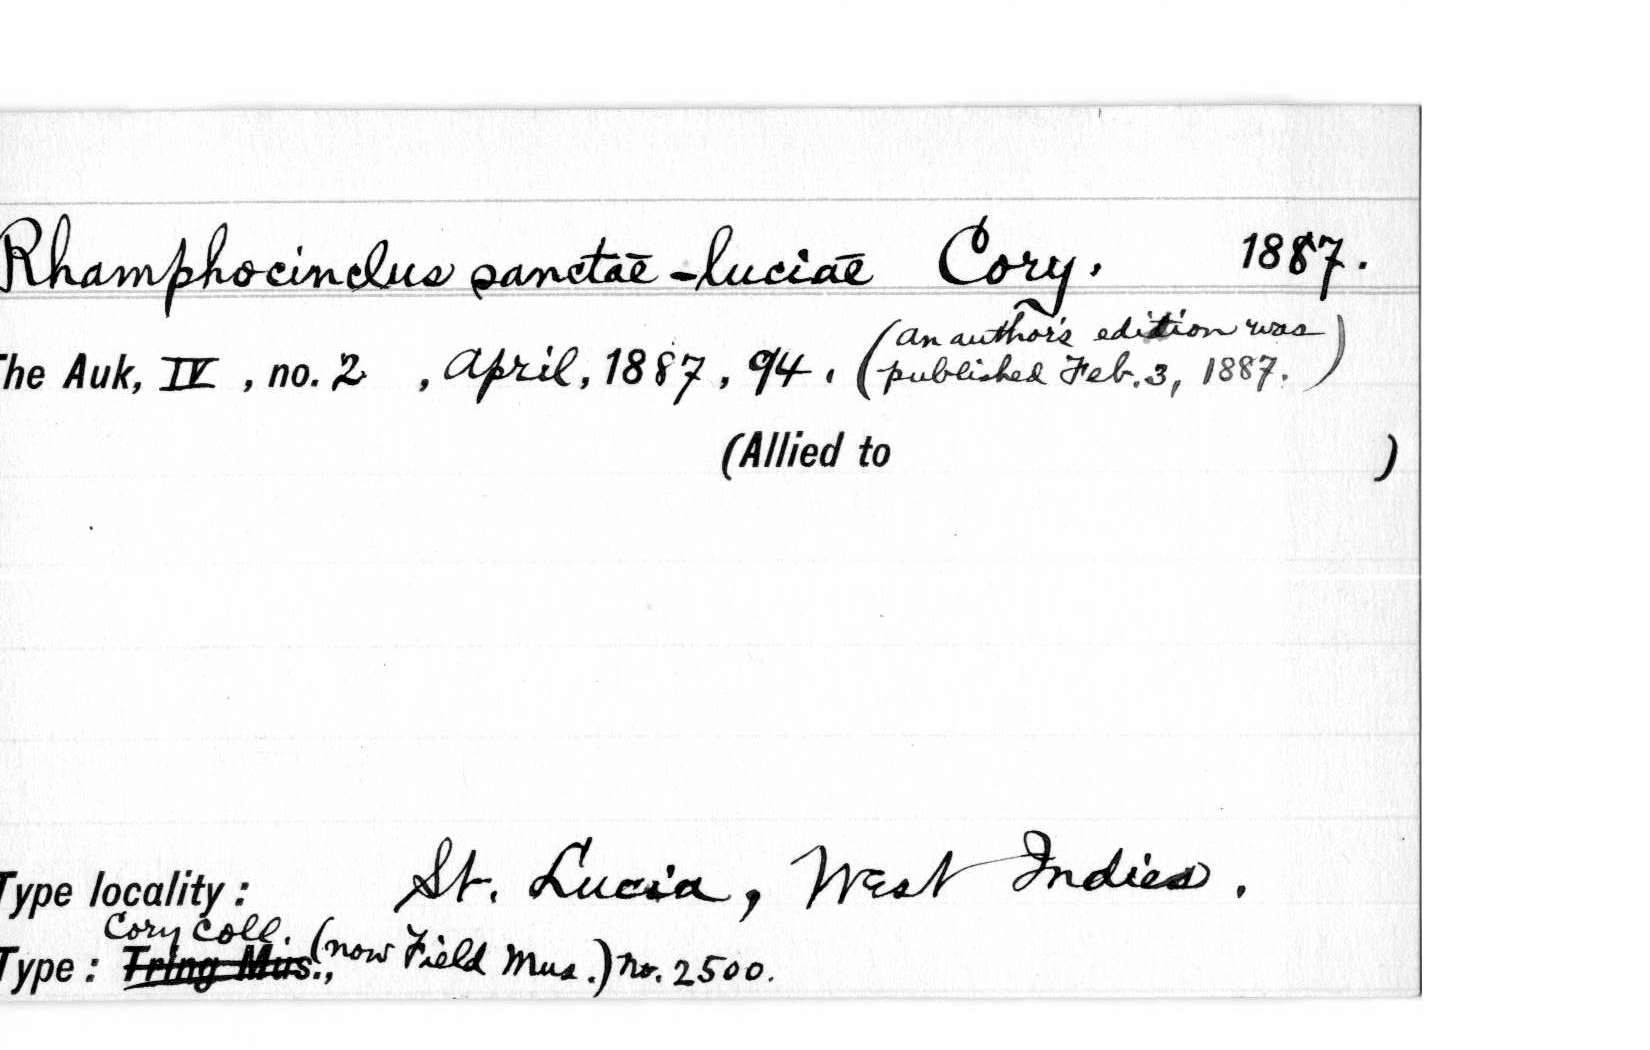 Rhamphocinclus sanctæ-luciæ Cory. 1887.
The Auk, IV, no. 2, April, 1887, 94. (an author's edition was
published Feb. 3, 1887.)
(Allied to )
Type locality: St. Lucia, West Indies.
Cory Coll.
Type: Tring Mus., (now Field Mus.) no. 2500.